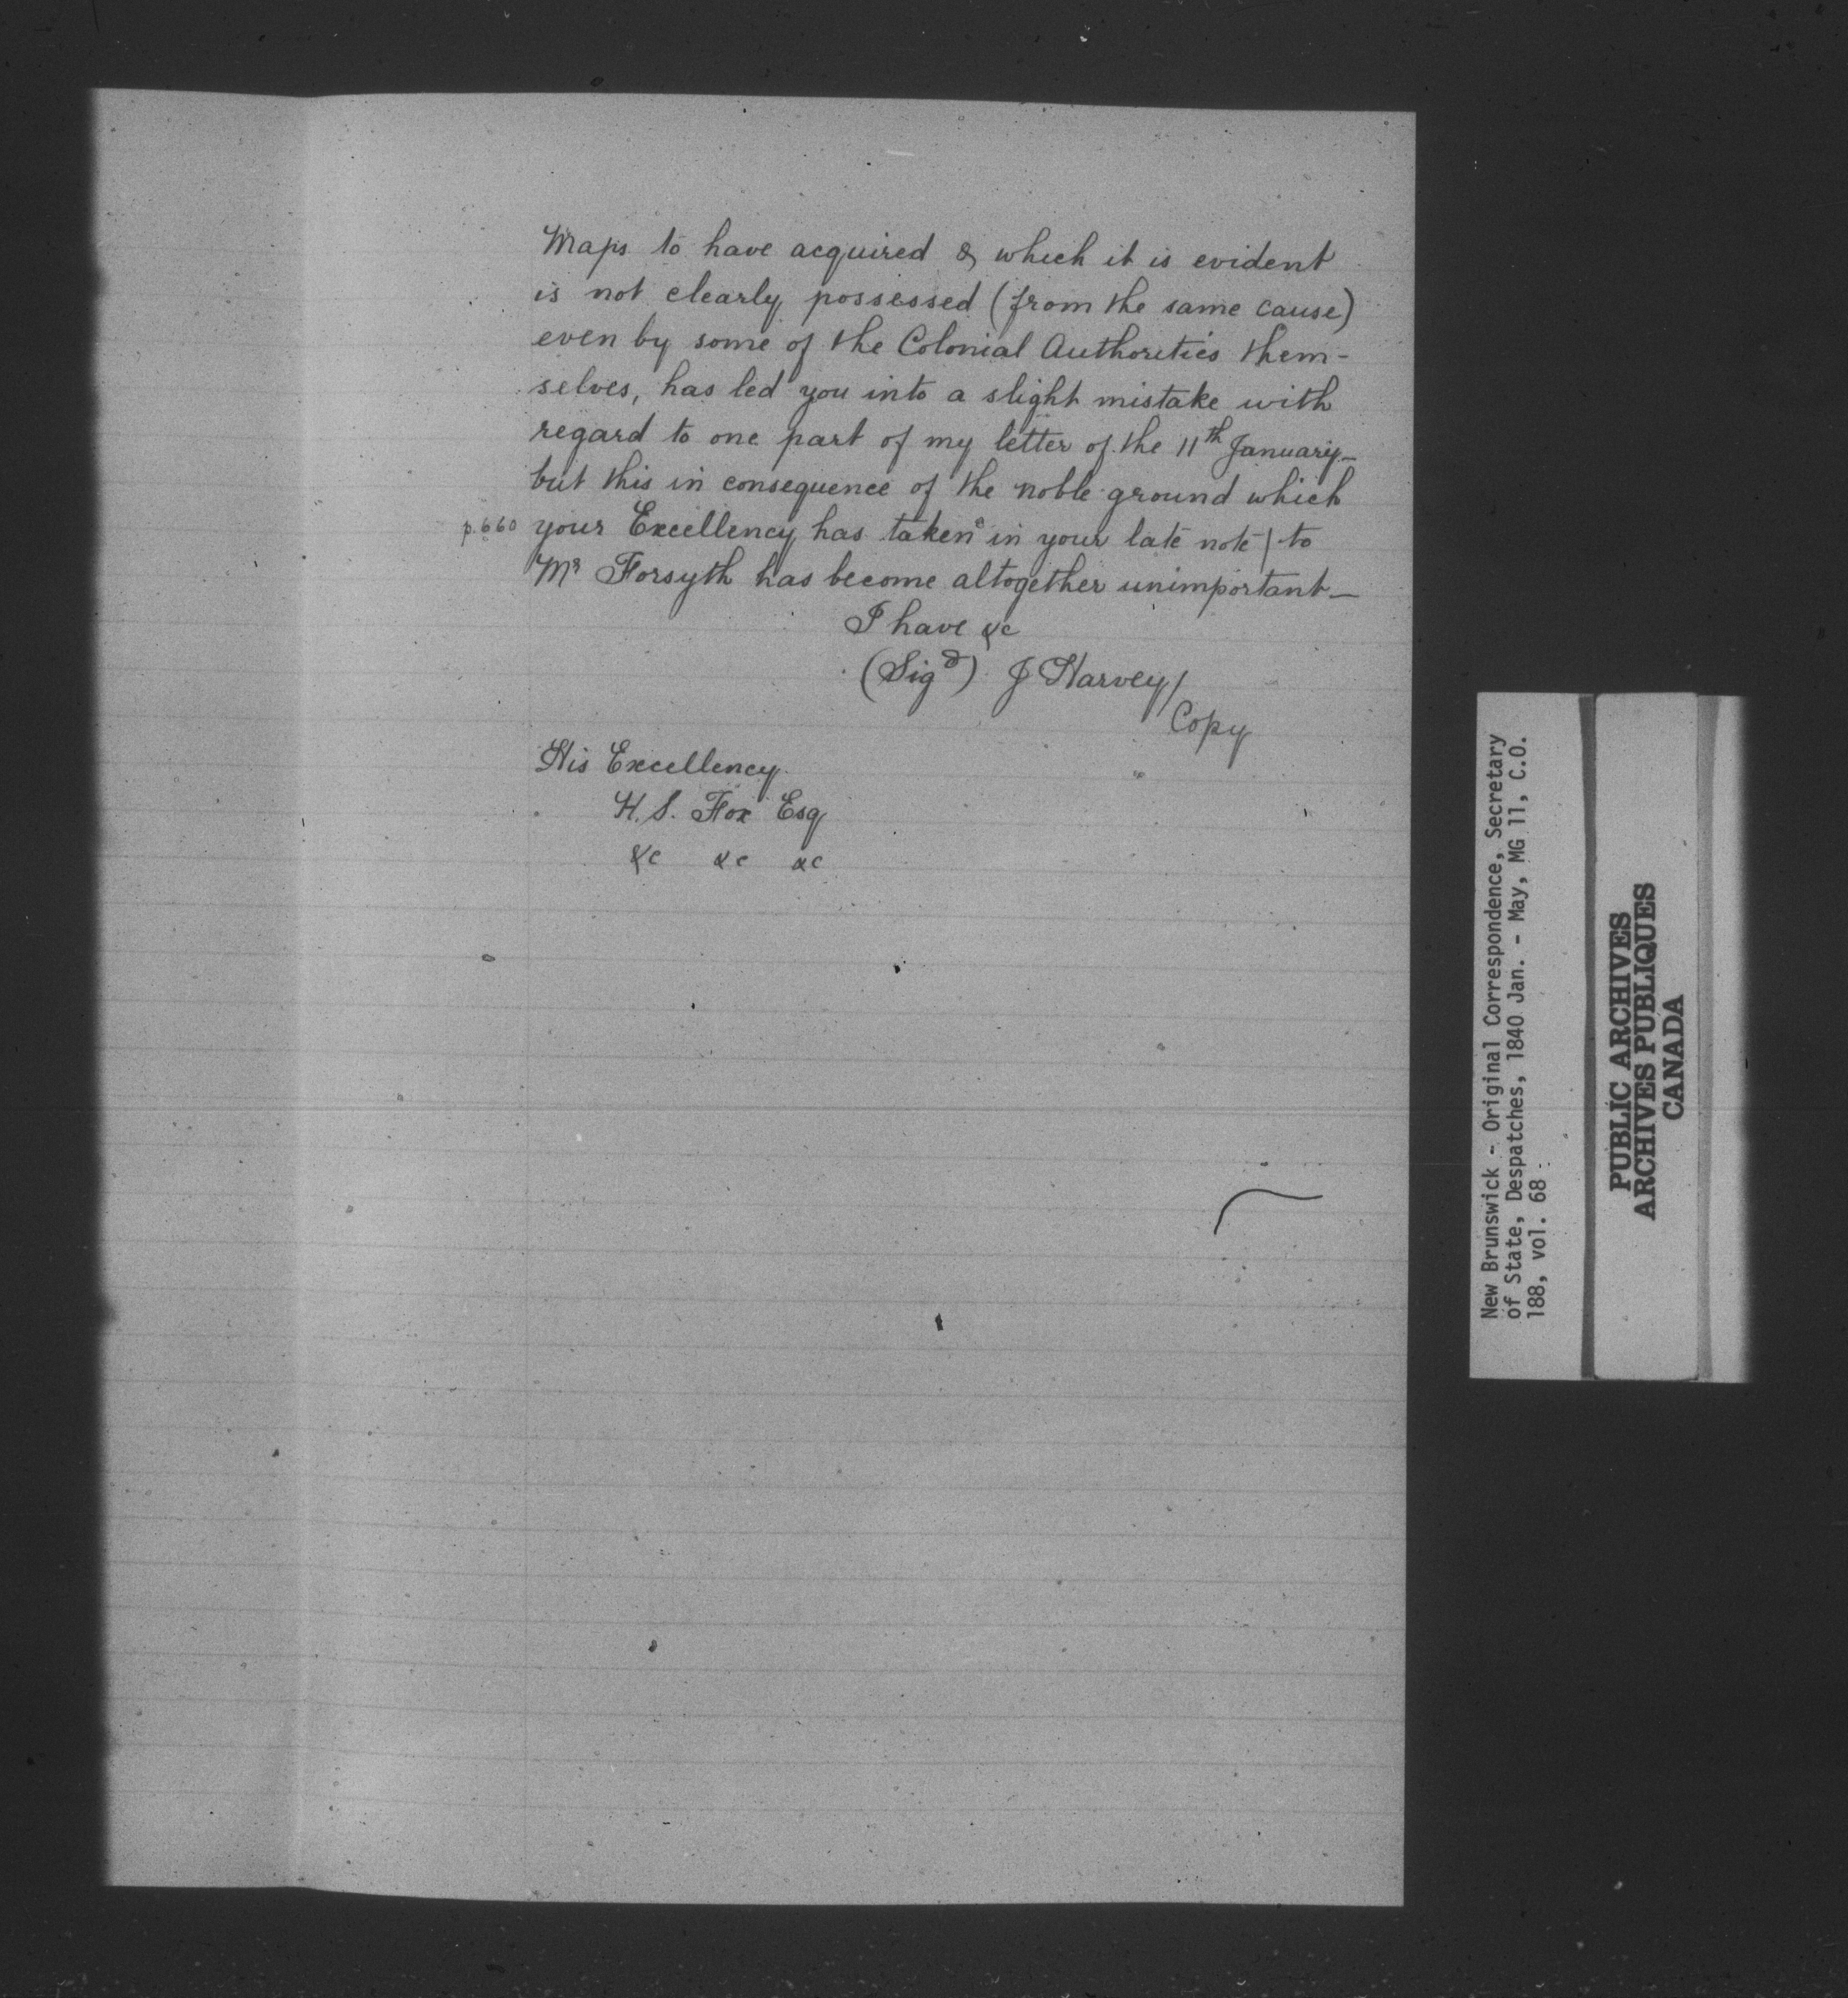 Maps to have acquired & which it is evident
is not clearly possessed (from the same cause)
even by some of the Colonial Authorities them-
selves, has led you into a slight mistake with
regard to one part of my letter of the 11th January—
but this in consequence of the noble ground which
p.660 your Excellency has taken in your late note | to
Mr Forsyth has become altogether unimportant—
I have &c
(Sigd) J Harvey/
Copy
His Excellency
H. S. Fox Esq
&c &c &c
New Brunswick - Original Correspondence, Secretary
of State, Despatches, 1840 Jan. - May, MG 11, C.O.
188, vol. 68
PUBLIC ARCHIVES
ARCHIVES PUBLIQUES
CANADA